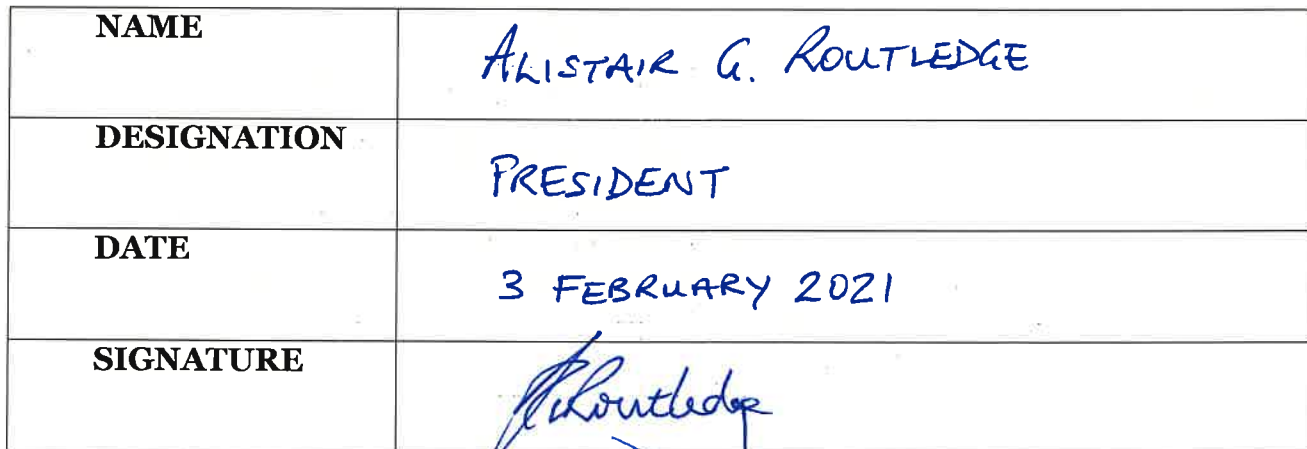 NAME ALISTAIR G. ROUTLEDGE
DESIGNATION PRESIDENT
DATE 3 FEBRUARY 2021
SIGNATURE AGRoutledge